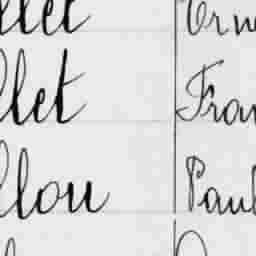 llet Ern
llet Fran
llou Paul